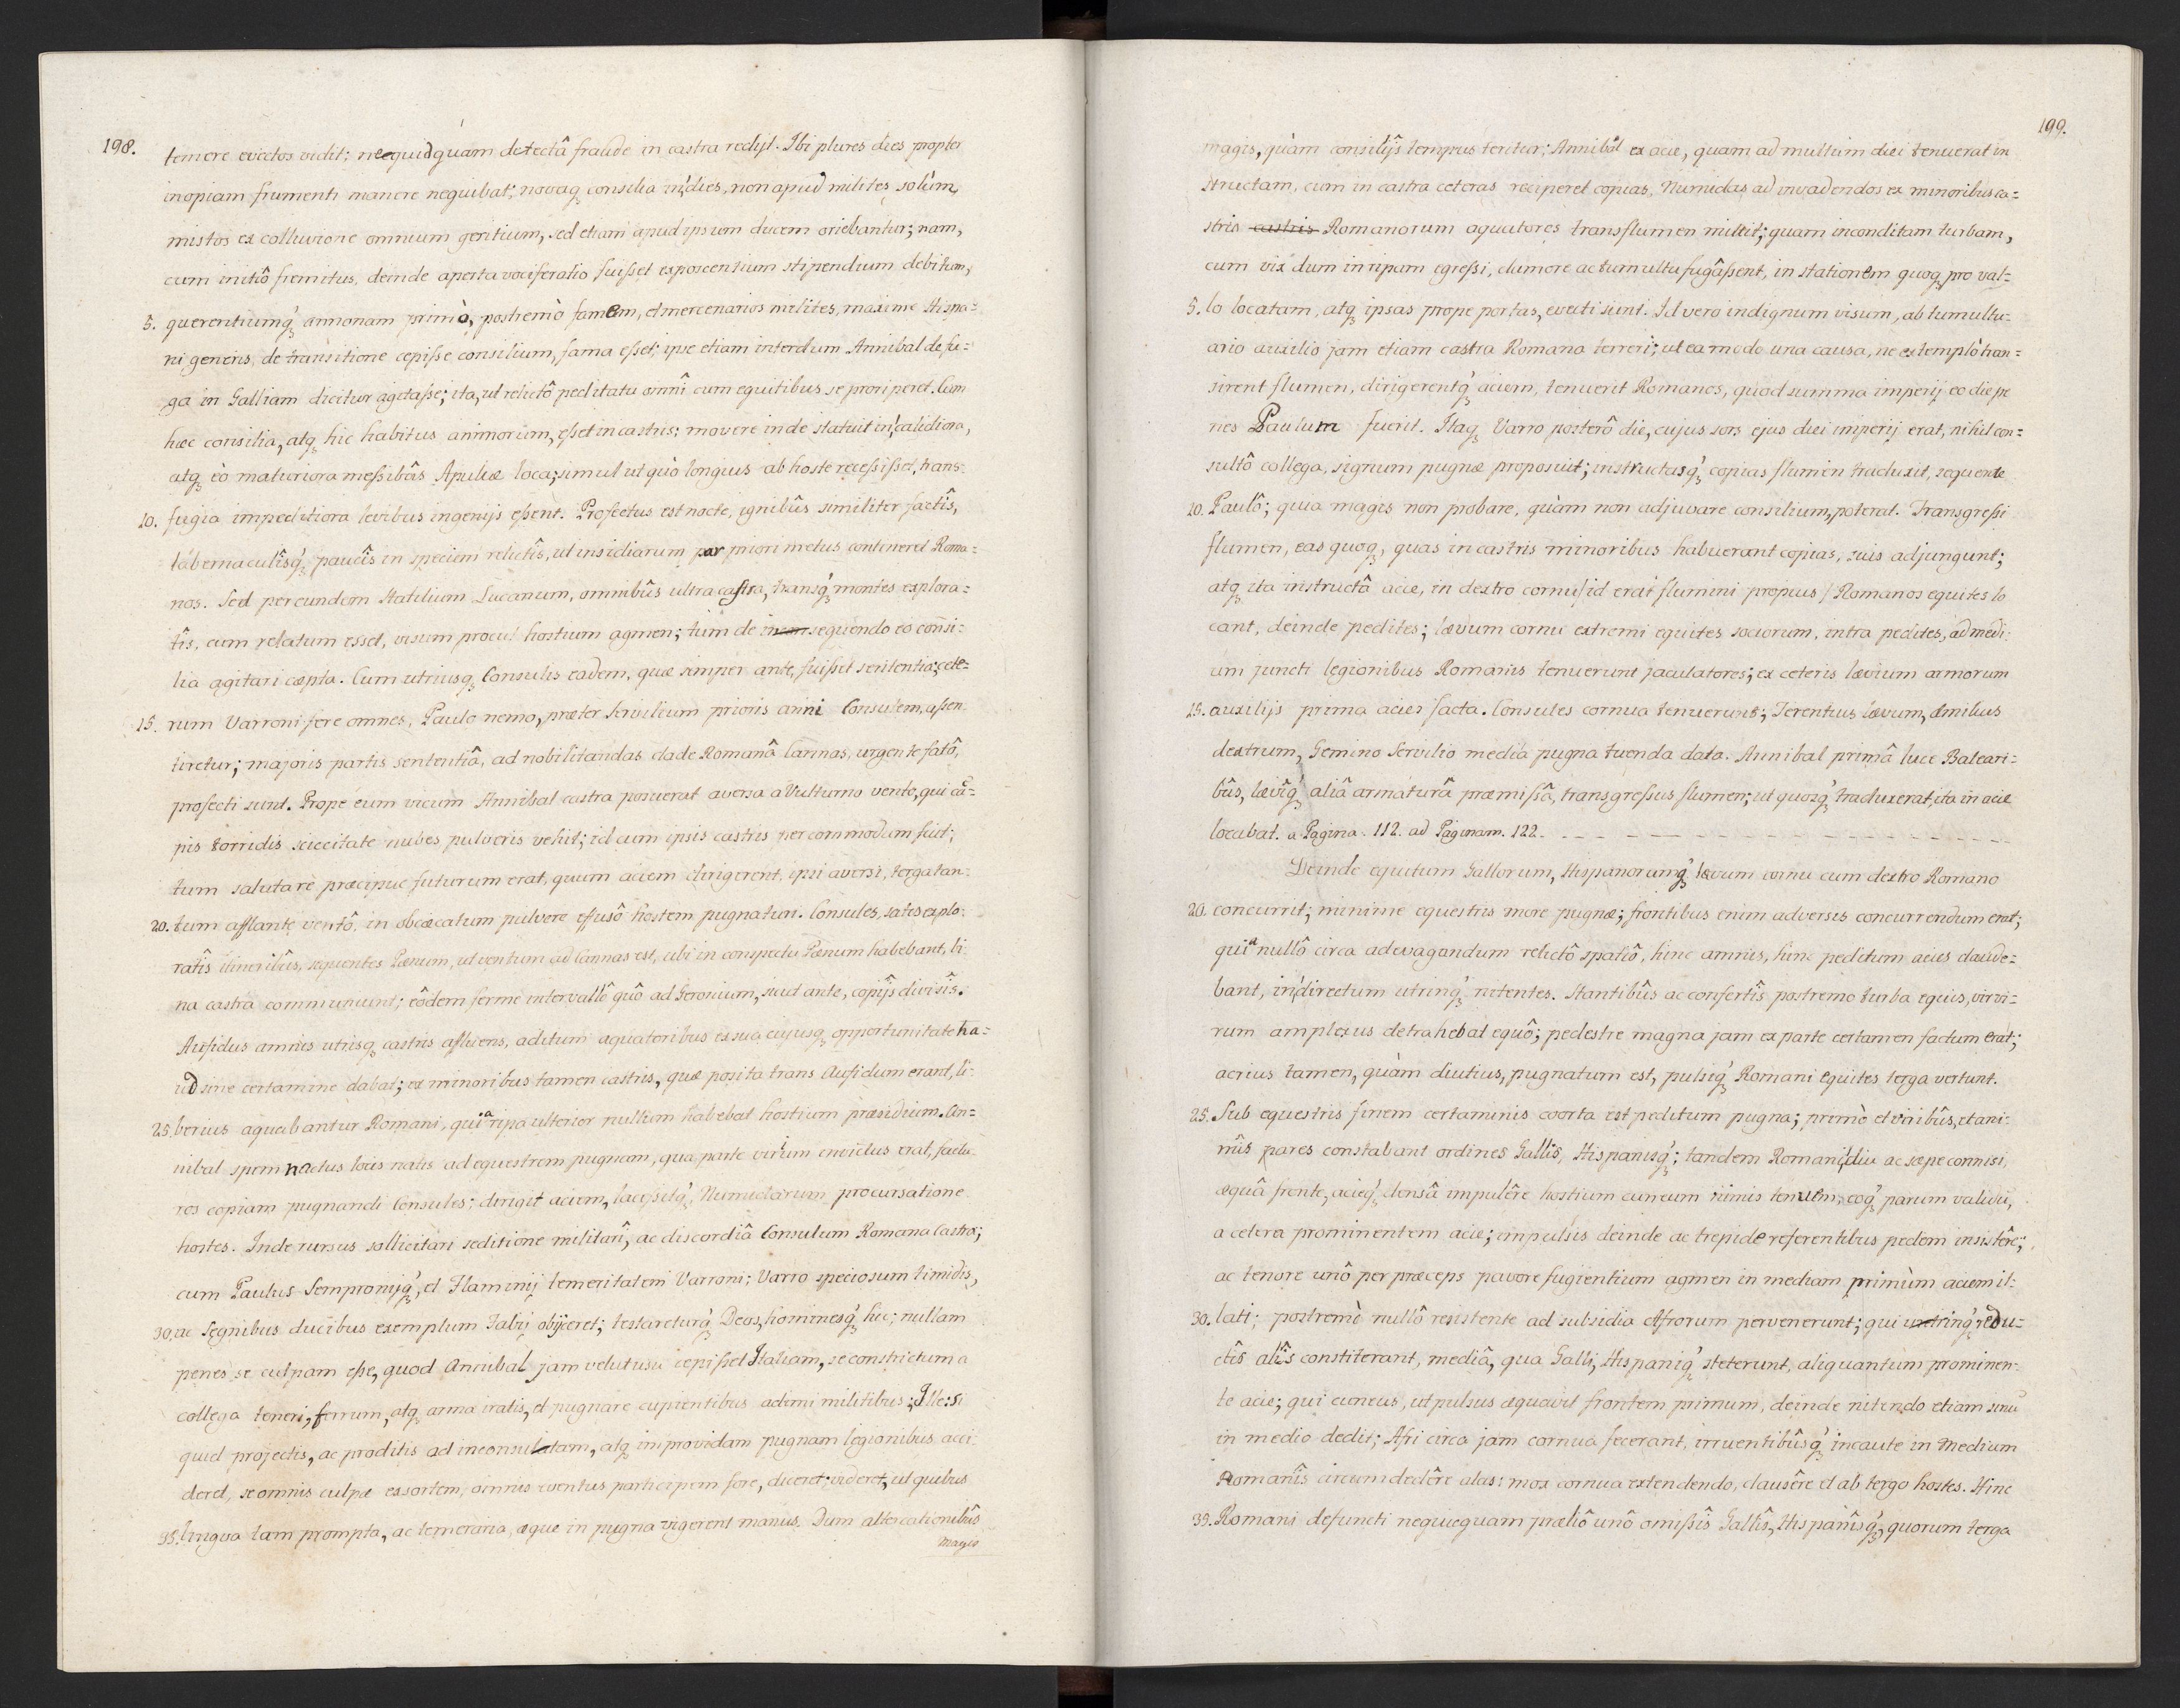 198.
temere evectos vidit; neequidquàm detectâ fraude in castra redijt. Ibi plures dies propter
inopiam frumenti manere nequibat; novaq consilia indies, non apud milites solùm,
mistos ex colluvione omnium gentium, sed etiam apud ipsum ducem oriebantur; nam,
cum initiô fremitus, deinde aperta vociferatio fuisset exposcentium stipendium debitum,
5. querentiumq́ annonam primò, postremò famem, et mercenarios milites, maxime Hispa=
ni generis, de transitione cepisse consilium, fama esset; ipse etiam interdum Annibal de fu=
ga in Galliam dicitur agitasse; ita, ut relictô peditatu omnî cum equitibus se proriperet. Cum
hæc consilia, atq hic habitus animorum, esset in castris; movere inde statuit in calidiora,
atq eò maturiora messibûs Apuliæ loca; simul ut quò longius ab hoste recessisset, trans=
10. fugia impeditiora levibus ingenijs essent. Profectus est nocte, ignibûs similiter factîs,
tabernaculîsq́ paucîs in speciem relictîs, ut insidiarum par priori metus contineret Roma=
nos. Sed per eundem Statilium Lucanum, omnibûs ultra castra, transq́ montes explora=
tîs, cum relatum esset, visum procul hostium agmen; tum de insequendo eo consi=
lia agitari cæpta. Cum utriusq Consulis eadem, quæ semper ante, fuisset sententia; cete=
15. rum Varroni fere omnes, Paulo nemo, præter Servilium prioris anni Consulem, assen=
tiretur; majoris partis sententiâ, ad nobilitandas clade Romanâ Cannas, urgente fatô,
profecti sunt. Prope eum vicum Annibal castra posuerat aversa a Vulturno vento, qui cā=
pis torridis siccitate nubes pulveris vehit; id cum ipsis castris percommodum fuit;
tum salutare præcipue futurum erat, quum aciem dirigerent, ipsi aversi, terga tan=
20. tum afflante ventô, in obcæcatum pulvere effusô hostem pugnaturi. Consules, satis explo=
ratîs itineribûs, sequentes Pænum, ut ventum ad Cannas est, ubi in conspectu Pænum habebant, bi=
na castra communiunt; eôdem ferme intervallô quô ad Geronium, sicut ante, copijs divisîs.
Aufidus amnis utrisq castris affluens, aditum aquatoribus ex sua cujusq opportunitate ha=
ud sine certamine dabat; ex minoribus tamen castris, quæ posita trans Aufidum erant, li=
25. berius aquabantur Romani, quia ripa ulterior nullum habebat hostium præsidium. An=
nibal spem nactus locis natis ad equestrem pugnam, qua parte virium invictus erat, factu=
ros copiam pugnandi Consules; dirigit aciem, lacessitq́ Numidarum procursatione
hostes. Inde rursus sollicitari seditione militarî, ac discordiâ Consulum Romana Castra;
cum Paulus Sempronijq́, et Flaminij temeritatem Varroni; Varro speciosum timidis,
30. ac segnibus ducibus exemplum Fabij objiceret; testareturq́ Deos, hominesq́ hic; nullam
penes se culpam esse, quod Annibal jam velut usu cepisset Italiam, se constrictum a
collega teneri, ferrum, atq arma iratis, et pugnare cupientibus adimi militibus; Ille: si
quid projectis, ac proditis ad inconsultam, atq improvidam pugnam legionibus acci=
deret, se omnis culpæ exsortem, omnis eventus participem fore, diceret; videret, ut quibus
35. lingua tam prompta, ac temeraria, æque in pugna vigerent manus. Dum altercationibûs
magis
199.
magis, quàm consilijs tempus teritur; Annibal ex acie, quam ad multum diei tenuerat in
structam, cum in castra ceteras reciperet copias, Numidas ad invadendos ex minoribus ca=
stris castris Romanorum aquatores trans flumen mittit; quam inconditam turbam,
cum vix dum in ripam egressi, clamore ac tumultu fugâssent, in stationem quoq pro val=
5. lo locatam, atq ipsas prope portas, evecti sunt. Id vero indignum visum, ab tumultu=
ario auxilio jam etiam castra Romana terreri; ut ea modo una causa, ne extemplò tran=
sirent flumen, dirigerentq́ aciem, tenuerit Romanos, quod summa imperij eo die pe
nes Paulum fuerit. Itaq Varro posterô die, cujus sors ejus diei imperij erat, nihil con=
sultô collega, signum pugnæ proposuit; instructasq́ copias flumen traduxit, sequente
10. Paulô; quia magis non probare, quàm non adjuvare consilium, poterat. Transgressi
flumen, eas quoq, quas in castris minoribus habuerant copias, suis adjungunt;
atq ita instructâ acie, in dextro cornu/id erat flumini propius/Romanos equites lo
cant, deinde pedites; lævum cornu extremi equites sociorum, intra pedites, ad medi=
um juncti legionibus Romanis tenuerunt jaculatores; ex ceteris lævium armorum
15. auxilijs prima acies facta. Consules cornua tenuerunt; Terentius lævum, Æmilius
dextrum, Gemino Servilio media pugna tuenda data. Annibal primâ luce Baleari=
bûs, lævîq́ aliâ armaturâ præmissâ, transgressus flumen; ut quosq́ traduxerat, ita in acie
locabat. a Pagina. 112. ad Paginam. 122. - - - - - - - - - - - - - - -
Deinde equitum Gallorum, Hispanorumq́ lævum cornu cum dextro Romano
20. concurrit; minime equestris more pugnæ; frontibus enim adversis concurrendum erat;
quia nullô circa ad evagandum relictô spatiô, hinc amnis, hinc peditum acies claude=
bant, in directum utrinq́ nitentes. Stantibûs ac confertîs postremo turba equis, vir vi=
rum amplexus detrahebat equô; pedestre magna jam ex parte certamen factum erat;
acrius tamen, quàm diutius, pugnatum est, pulsiq́ Romani equites terga vertunt.
25. Sub equestris finem certaminis coorta est peditum pugna; primò et viribûs, et ani=
mîs pares constabant ordines Gallîs, Hispanisq́; tandem Romani, diu ac sæpe connisi,
æquâ fronte, acieq́ densâ impulêre hostium cuneum nimis tenuem, eoq́ parum validū,
a cetera prominentem acie; impulsis deinde ac trepide referentibus pedem insistêre;
ac tenore unô per præceps pavore fugientium agmen in mediam primùm aciem il=
30. lati; postremò nullô resistente ad subsidia Afrorum pervenerunt; qui utrinq́ redu=
ctîs alîs constiterant, mediâ, qua Galli, Hispaniq́ steterunt, aliquantum prominen=
te acie; qui cuneus, ut pulsus æquavit frontem primum, deinde nitendo etiam sinū
in medio dedit; Afri circa jam cornua fecerant, irruentibûsq́ incaute in medium
Romanîs circumdedêre alas; mox cornua extendendo, clausêre et ab tergo hostes. Hinc
35. Romani defuncti nequicquam præliô unô omissîs Gallîs, Hispanîsq́, quorum terga